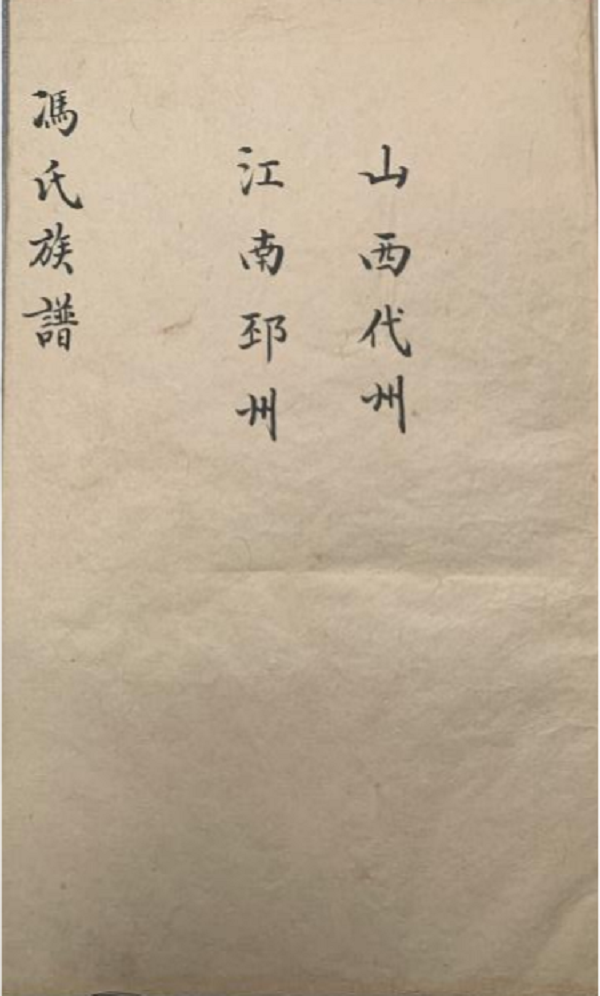 山西代州
江南邳州
馮氏族譜